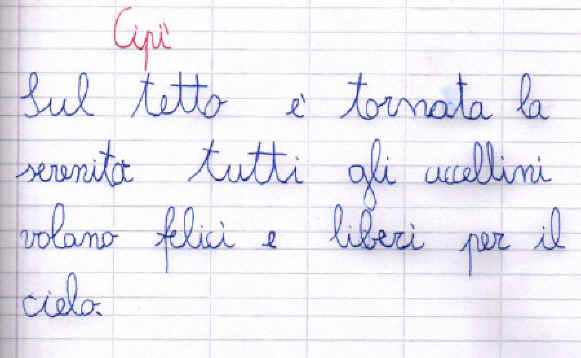 Cipì
Sul tetto è tornata la
serenità tutti gli uccellini
volano felici e liberi per il
cielo.